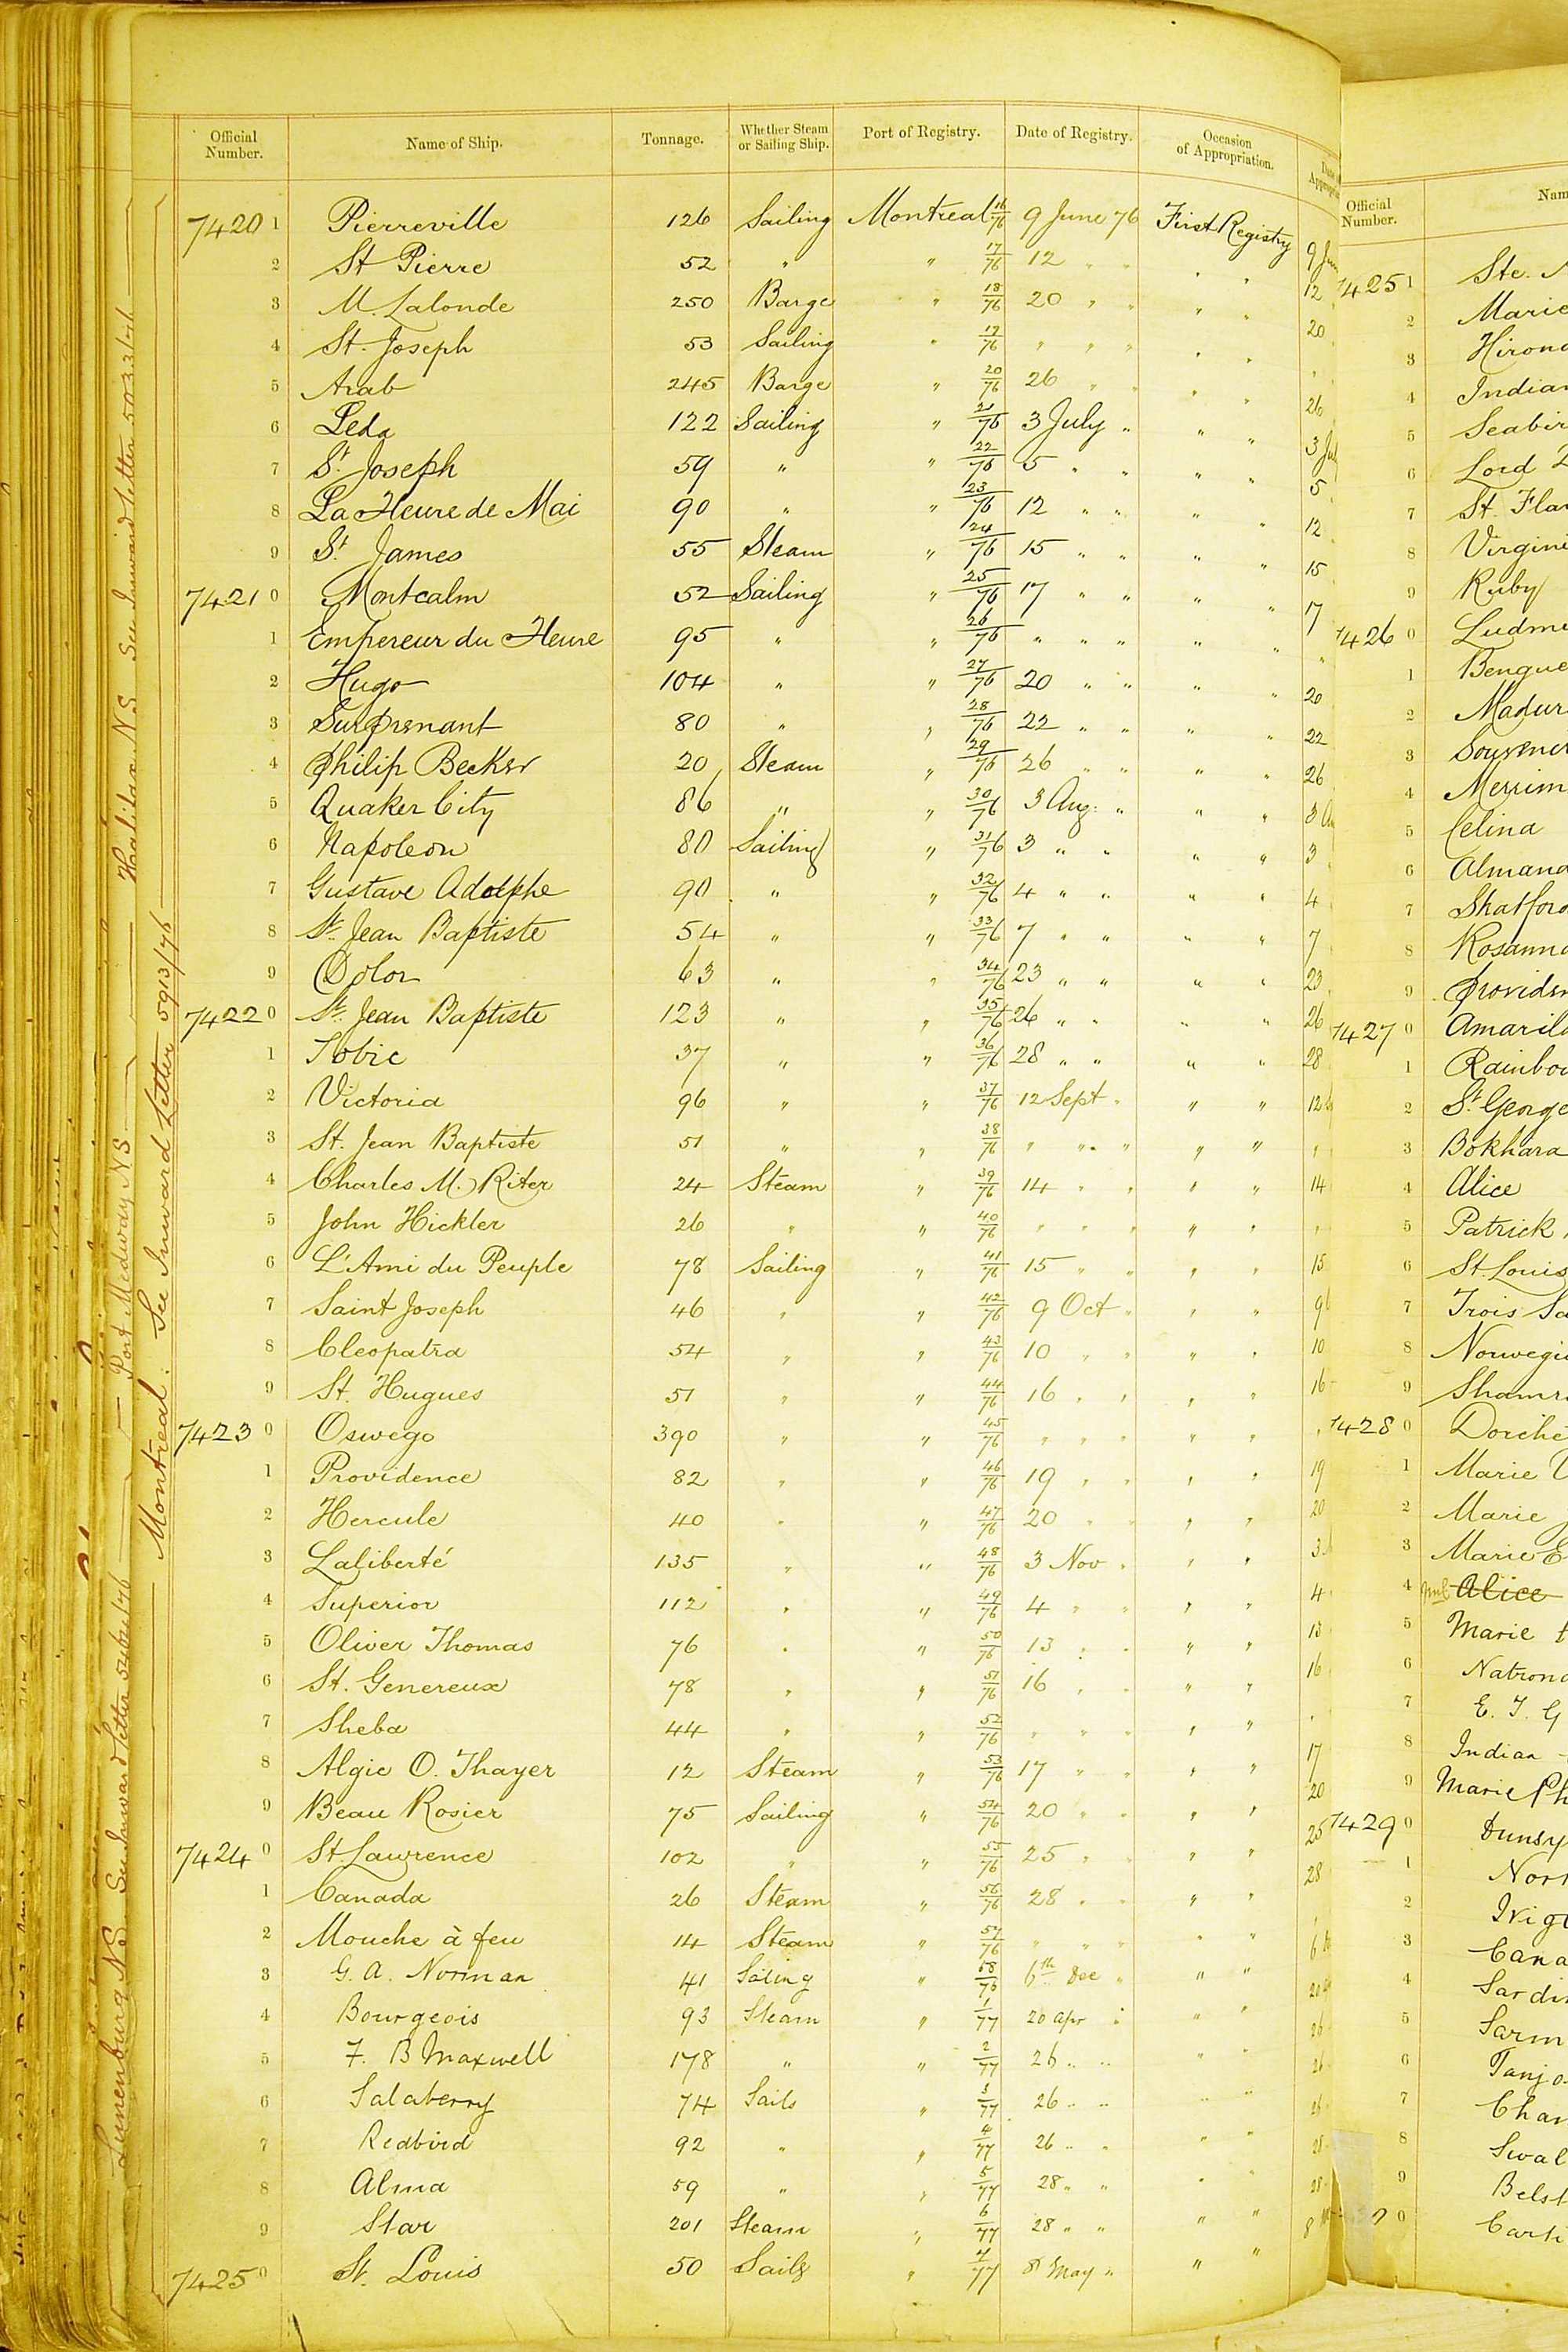 Official Number. Name of Ship. Tonnage. Whether Steam or Sailing Ship. Port of Registry. Date of Registry. Occasion of Appropriation.
7420 1 Pierreville 126 Sailing Montreal 16/76 9 June 76 First Registry 9 Jun
2 St Pierre 52 " " 17/76 12 " " " " 12
3 M. Lalonde 250 Barge " 18/76 20 " " " " 20
4 St. Joseph 53 Sailing " 19/76 " " " " " "
5 Arab 245 Barge " 20/76 26 " " " " 26
6 Leda 122 Sailing " 21/76 3 July " " " 3 Jul
7 St. Joseph 59 " " 22/76 5 " " " " 5
8 La Heure de Mai 90 " " 23/76 12 " " " " 12
9 St. James 55 Steam " 24/76 15 " " " " 15
7421 0 Montcalm 52 Sailing " 25/76 17 " " " " 17
1 Empereur du Heure 95 " " 26/76 " " " " " "
2 Hugo 104 " " 27/76 20 " " " " 20
3 Surprenant 80 " " 28/76 22 " " " " 22
4 Philip Becker 20 Steam " 29/76 26 " " " " 26
5 Quaker City 86 " " 30/76 3 Aug. " " " 3 A
6 Napoleon 80 Sailing " 31/76 3 " " " " 3
7 Gustave Adolphe 90 " " 32/76 4 " " " " 4
8 St. Jean Baptiste 54 " " 33/76 7 " " " " 7
9 Dolor 63 " " 34/76 23 " " " " 23
7422 0 St. Jean Baptiste 123 " " 35/76 26 " " " " 26
1 Tobie 37 " " 36/76 28 " " " " 28
2 Victoria 96 " " 37/76 12 Sept " " " 12
3 St. Jean Baptiste 51 " " 38/76 " " " " " "
4 Charles M. Riter 24 Steam " 39/76 14 " " " " 14
5 John Hickler 26 " " 40/76 " " " " " "
6 L'Ami du Peuple 78 Sailing " 41/76 15 " " " " 15
7 Saint Joseph 46 " " 42/76 9 Oct " " " 9
8 Cleopatra 54 " " 43/76 10 " " " " 10
9 St. Hugues 51 " " 44/76 16 " " " " 16
7423 0 Oswego 390 " " 45/76 " " " " " "
1 Providence 82 " " 46/76 19 " " " " 19
2 Hercule 40 " " 47/76 20 " " " " 20
3 Laliberté 135 " " 48/76 3 Nov " " " 3
4 Superior 112 " " 49/76 4 " " " " 4
5 Oliver Thomas 76 " " 50/76 13 " " " " 13
6 St. Genereux 78 " " 51/76 16 " " " " 16
7 Sheba 44 " " 52/76 " " " " " "
8 Algie O. Thayer 12 Steam " 53/76 17 " " " " 17
9 Beau Rosier 75 Sailing " 54/76 20 " " " " 20
7424 0 St. Lawrence 102 " " 55/76 25 " " " " 25
1 Canada 26 Steam " 56/76 28 " " " " 28
2 Mouche à feu 14 Steam " 57/76 " " " " " "
3 G. A. Norman 41 Sailing " 58/76 6th Dec " " " 6
4 Bourgeois 93 Steam " 1/77 20 apr " " " 20
5 F. B Maxwell 178 " " 2/77 26 " " " " 26
6 Salaberry 74 Sails " 3/77 26 " " " " 26
7 Redbird 92 " " 4/77 26 " " " " 26
8 Alma 59 " " 5/77 28 " " " " 28
9 Star 201 Steam " 6/77 28 " " " " 28
7425 0 St. Louis 50 Sails " 7/77 8 May " " " 8
Montreal. See Inward Letter 5913/76
Port Medway N.S
Lunenburg N.S. See Inward Letter
See Inward Letter
Official Number. Nam
7425 1 Ste.
2 Marie
3 Hirond
4 Indian
5 Seabir
6 Lord
7 St. Fla
8 Virgini
9 Ruby
7426 0 Ludm
1 Bengue
2 Madur
3 Souveni
4 Merrim
5 Celina
6 Almand
7 Shatfor
8 Rosanna
9 Providen
7427 0 Amaril
1 Rainbow
2 St. George
3 Bokhara
4 Alice
5 Patrick
6 St. Louis
7 Trois Sa
8 Norwegi
9 Shamr
7428 0 Dorche
1 Marie
2 Marie
3 Marie E
4 Alice
5 Marie
6 Nation
7 E. T. G
8 Indian
9 Marie Ph
7429 0 Dunsy
1 Nor
2 Ivig
3 Cana
4 Sardi
5 Sarm
6 Tanjo
7 Char
8 Swal
9 Belst
0 Carti